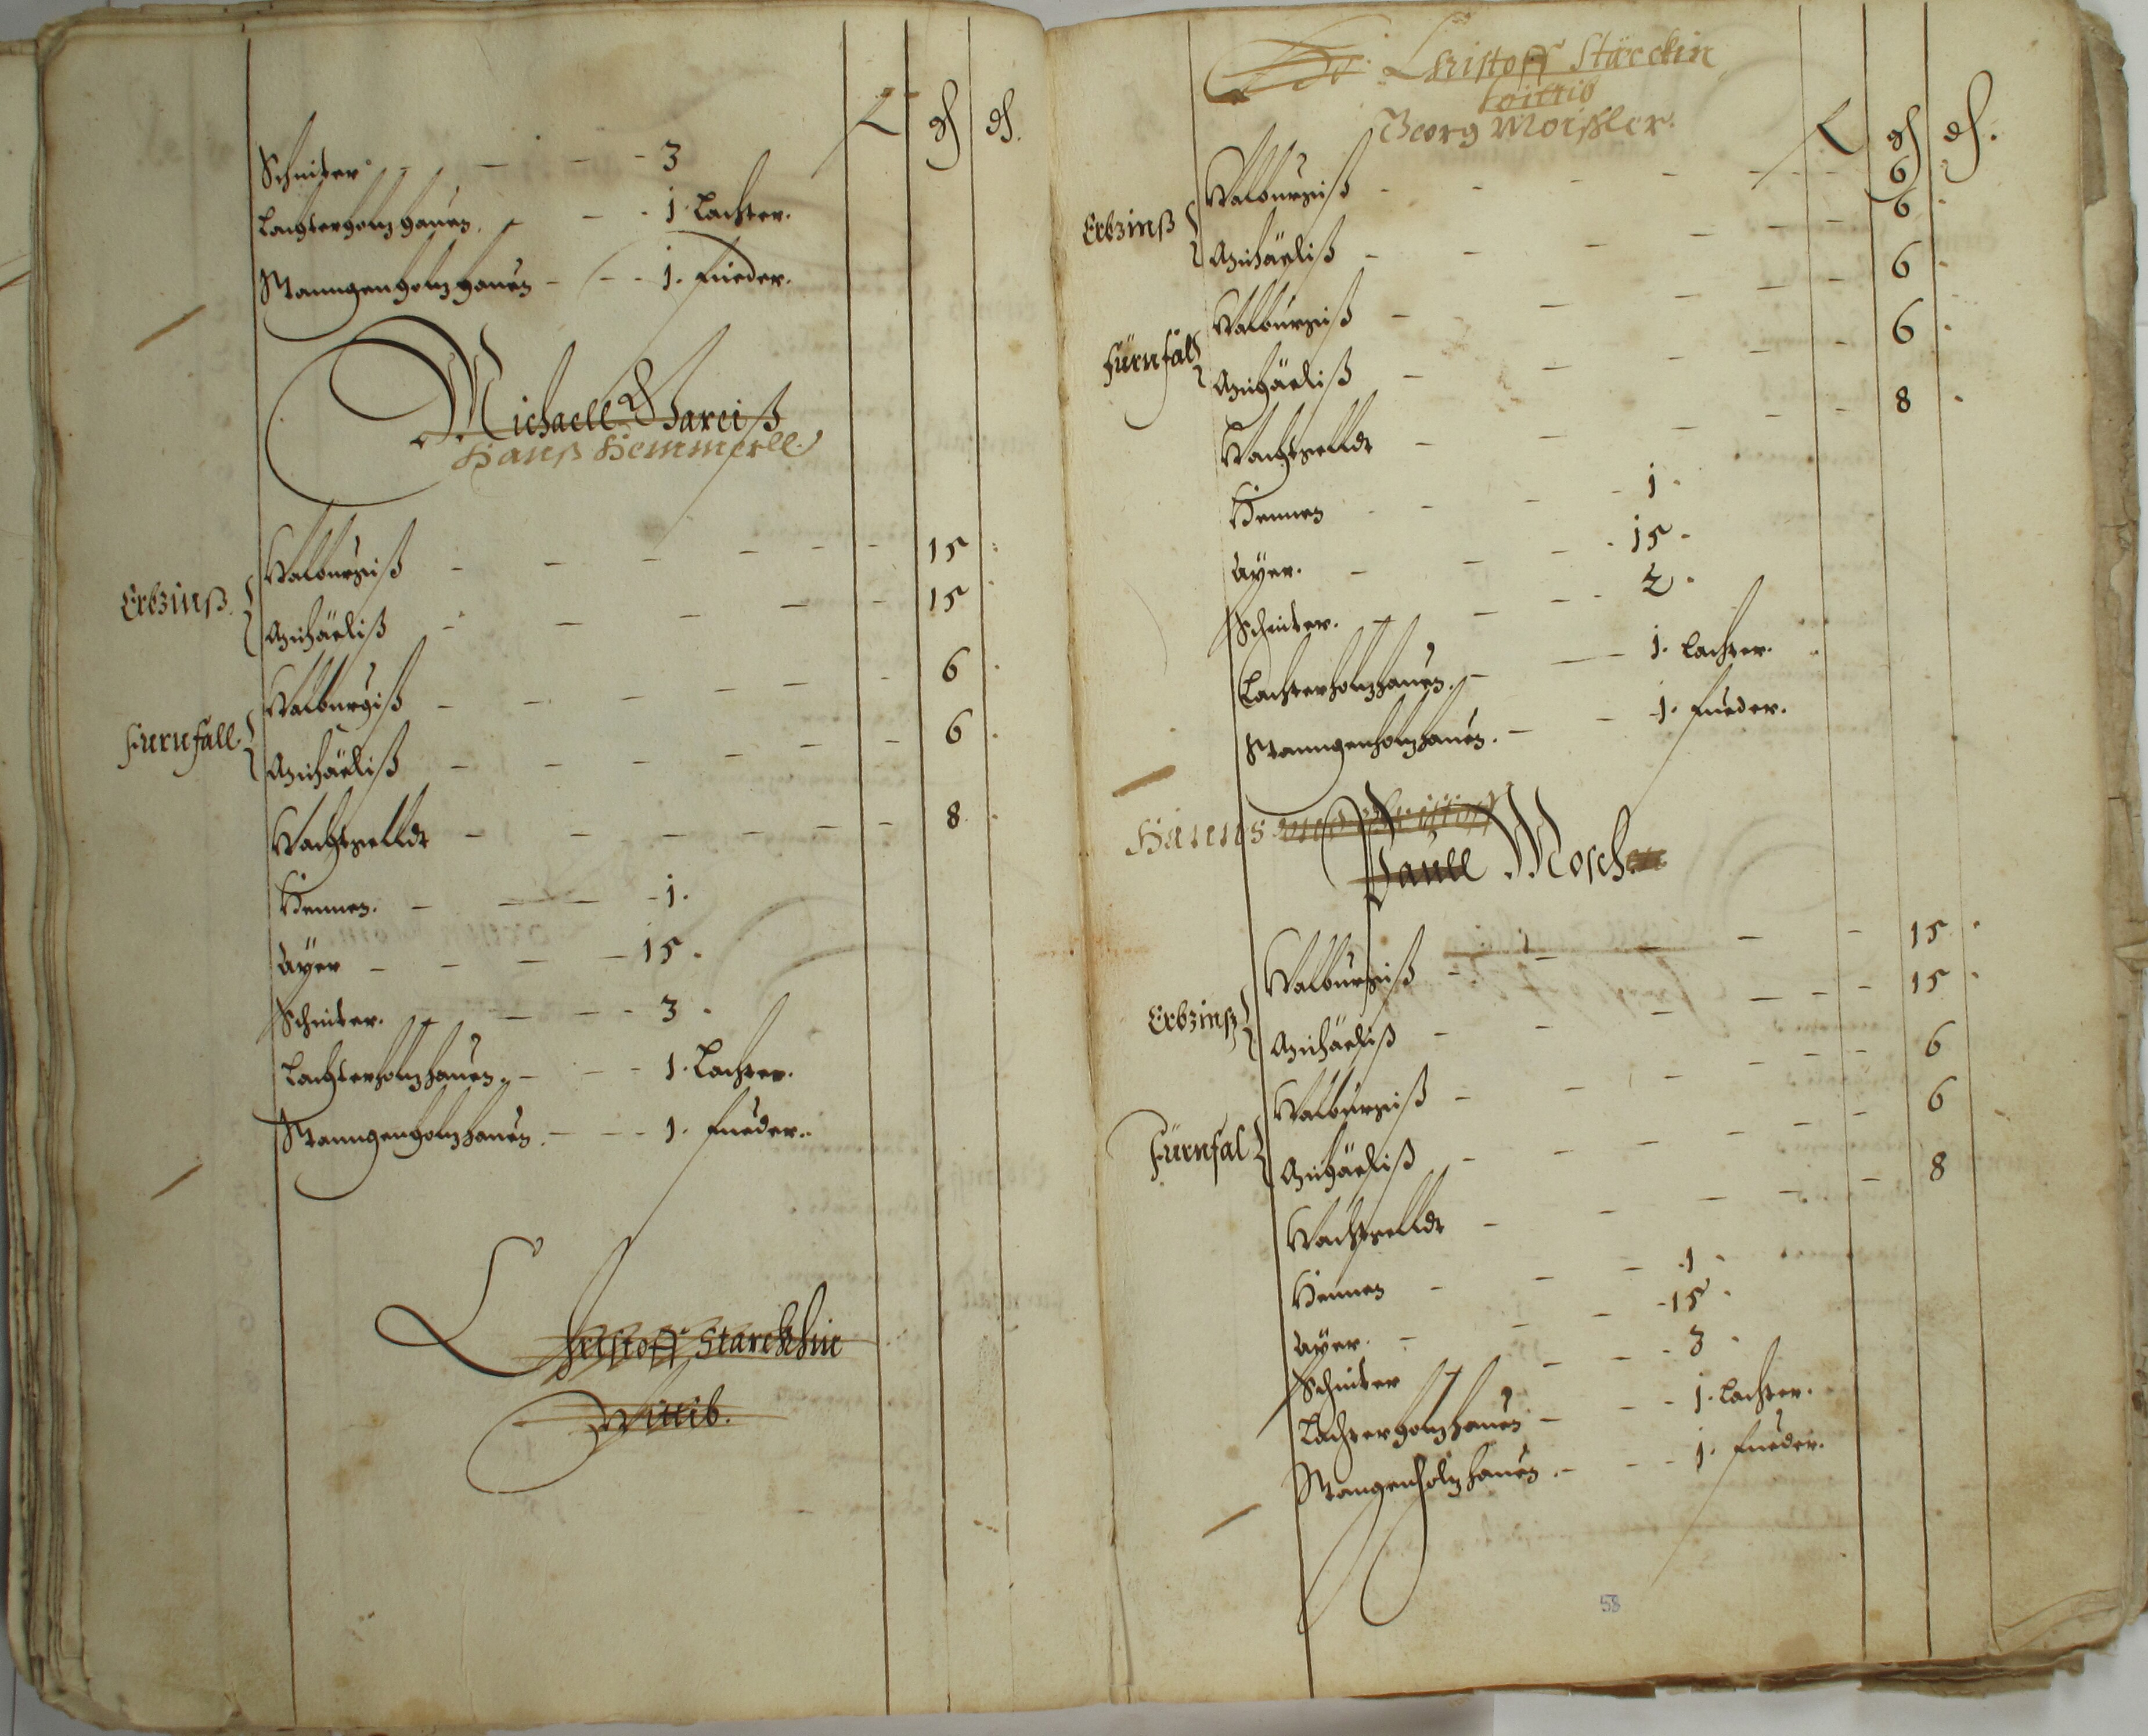 ß gl dl.
Schniter - - - 3
Lachterholz hauen. - - 1. Lachter.
Stanngenholz hauen - - - 1. Fueder.
Michaell Gareiß
Hanß Hemmerle
Erbzinß. { Walburgiß - - - 15
Michäeliß - - - 15
Furnfall { Walburgiß - - - 6
Michäeliß - - - 6
Wachtgelldt - - - 8
Hennen. - - - 1.
Ayer - - - 15.
Schniter. - - - 3.
Lachterholzhauen. - - - 1. Lachter.
Stanngenholzhauen. - - - 1. Fueder.
Christoff Starckhin
Wittib.
Christoff Stärckin
Wittib
Georg Moißler.
ß gl dl.
Erbzinß { Walburgiß - - - 6
Michäeliß - - - 6
Fürnfal { Walburgiß - - - 6
Michäeliß - - - 6
Wachtgelldt - - - 8
Hennen - - - 1.
Ayer. - - - 15.
Schniter. - - - 2.
Lachterholzhauen. - - - 1. Lachter.
Stanngenholzhauen. - - - 1. Fueder.
Hanns
Paull Mosch
Erbzinß { Walburgiß - - - 15
Michäeliß - - - 15
Fürnfal { Walburgiß - - - 6
Michäeliß - - - 6
Wachtgelldt - - - 8
Hennen - - - 1
Ayer. - - - 15
Schniter - - - 3
Lachterholzhauen - - - 1. Lachter.
Stangenholzhauen. - - - 1. Fueder.
58